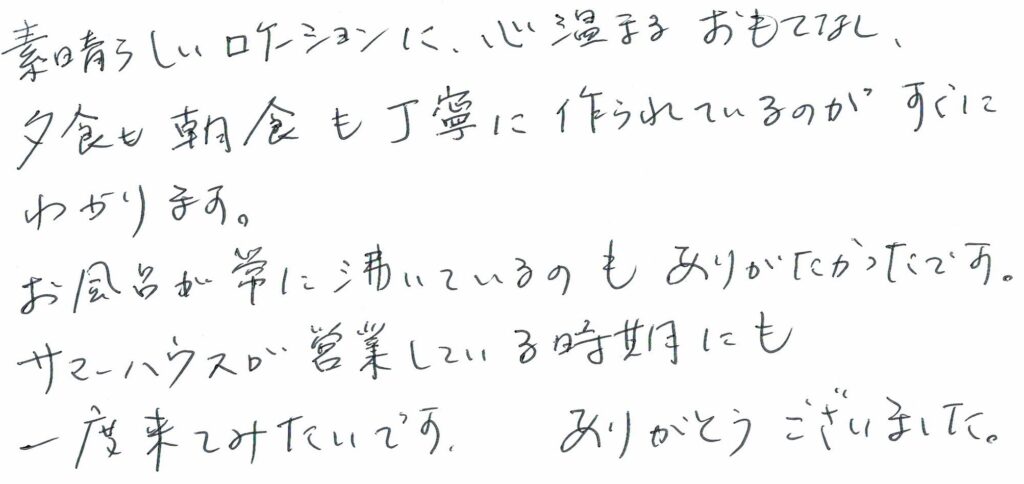 素晴らしいロケーションに、心温まるおもてなし、
夕食も朝食も丁寧に作られているのがすぐに
わかります。
お風呂が常に沸いているのもありがたかったです。
サマーハウスが営業している時期にも
一度来てみたいです. ありがとうございました。